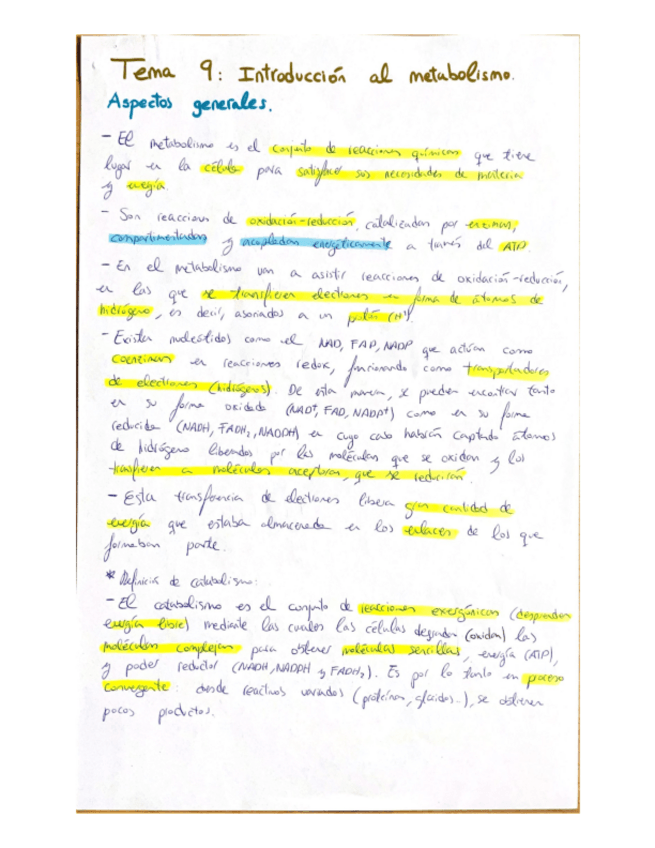 Tema 9: Introducción al metabolismo.
Aspectos generales.
- El metabolismo es el conjunto de reacciones químicas que tiene
lugar en la célula para satisfacer sus necesidades de materia
y energía.
- Son reacciones de oxidación-reducción, catalizadas por enzimas,
compartimentadas y acopladas energéticamente a través del ATP
- En el metabolismo van a asistir reacciones de oxidación-reducción,
en las que se transfieren electrones en forma de átomos de
hidrógeno, es decir, asociados a un protón (H⁺).
- Existen nucleótidos como el NAD, FAD, NADP que actúan como
coenzimas en reacciones redox, funcionando como transportadores
de electrones (hidrógenos). De esta manera, se pueden encontrar tanto
en su forma oxidada (NAD⁺, FAD, NADP⁺) como en su forma
reducida (NADH, FADH₂, NADPH) en cuyo caso habrán captado átomos
de hidrógeno liberados por las moléculas que se oxidan y los
transfieren a moléculas aceptoras, que se reducirán.
- Esta transferencia de electrones libera gran cantidad de
energía que estaba almacenada en los enlaces de los que
formaban parte.
* Definición de catabolismo:
- El catabolismo es el conjunto de reacciones exergónicas (desprenden
energía libre) mediante las cuales las células degradan (oxidan) las
moléculas complejas para obtener moléculas sencillas, energía (ATP),
y poder reductor (NADH, NADPH y FADH₂). Es por lo tanto un proceso
convergente: desde reactivos variados (proteínas, glúcidos..), se obtienen
pocos productos.